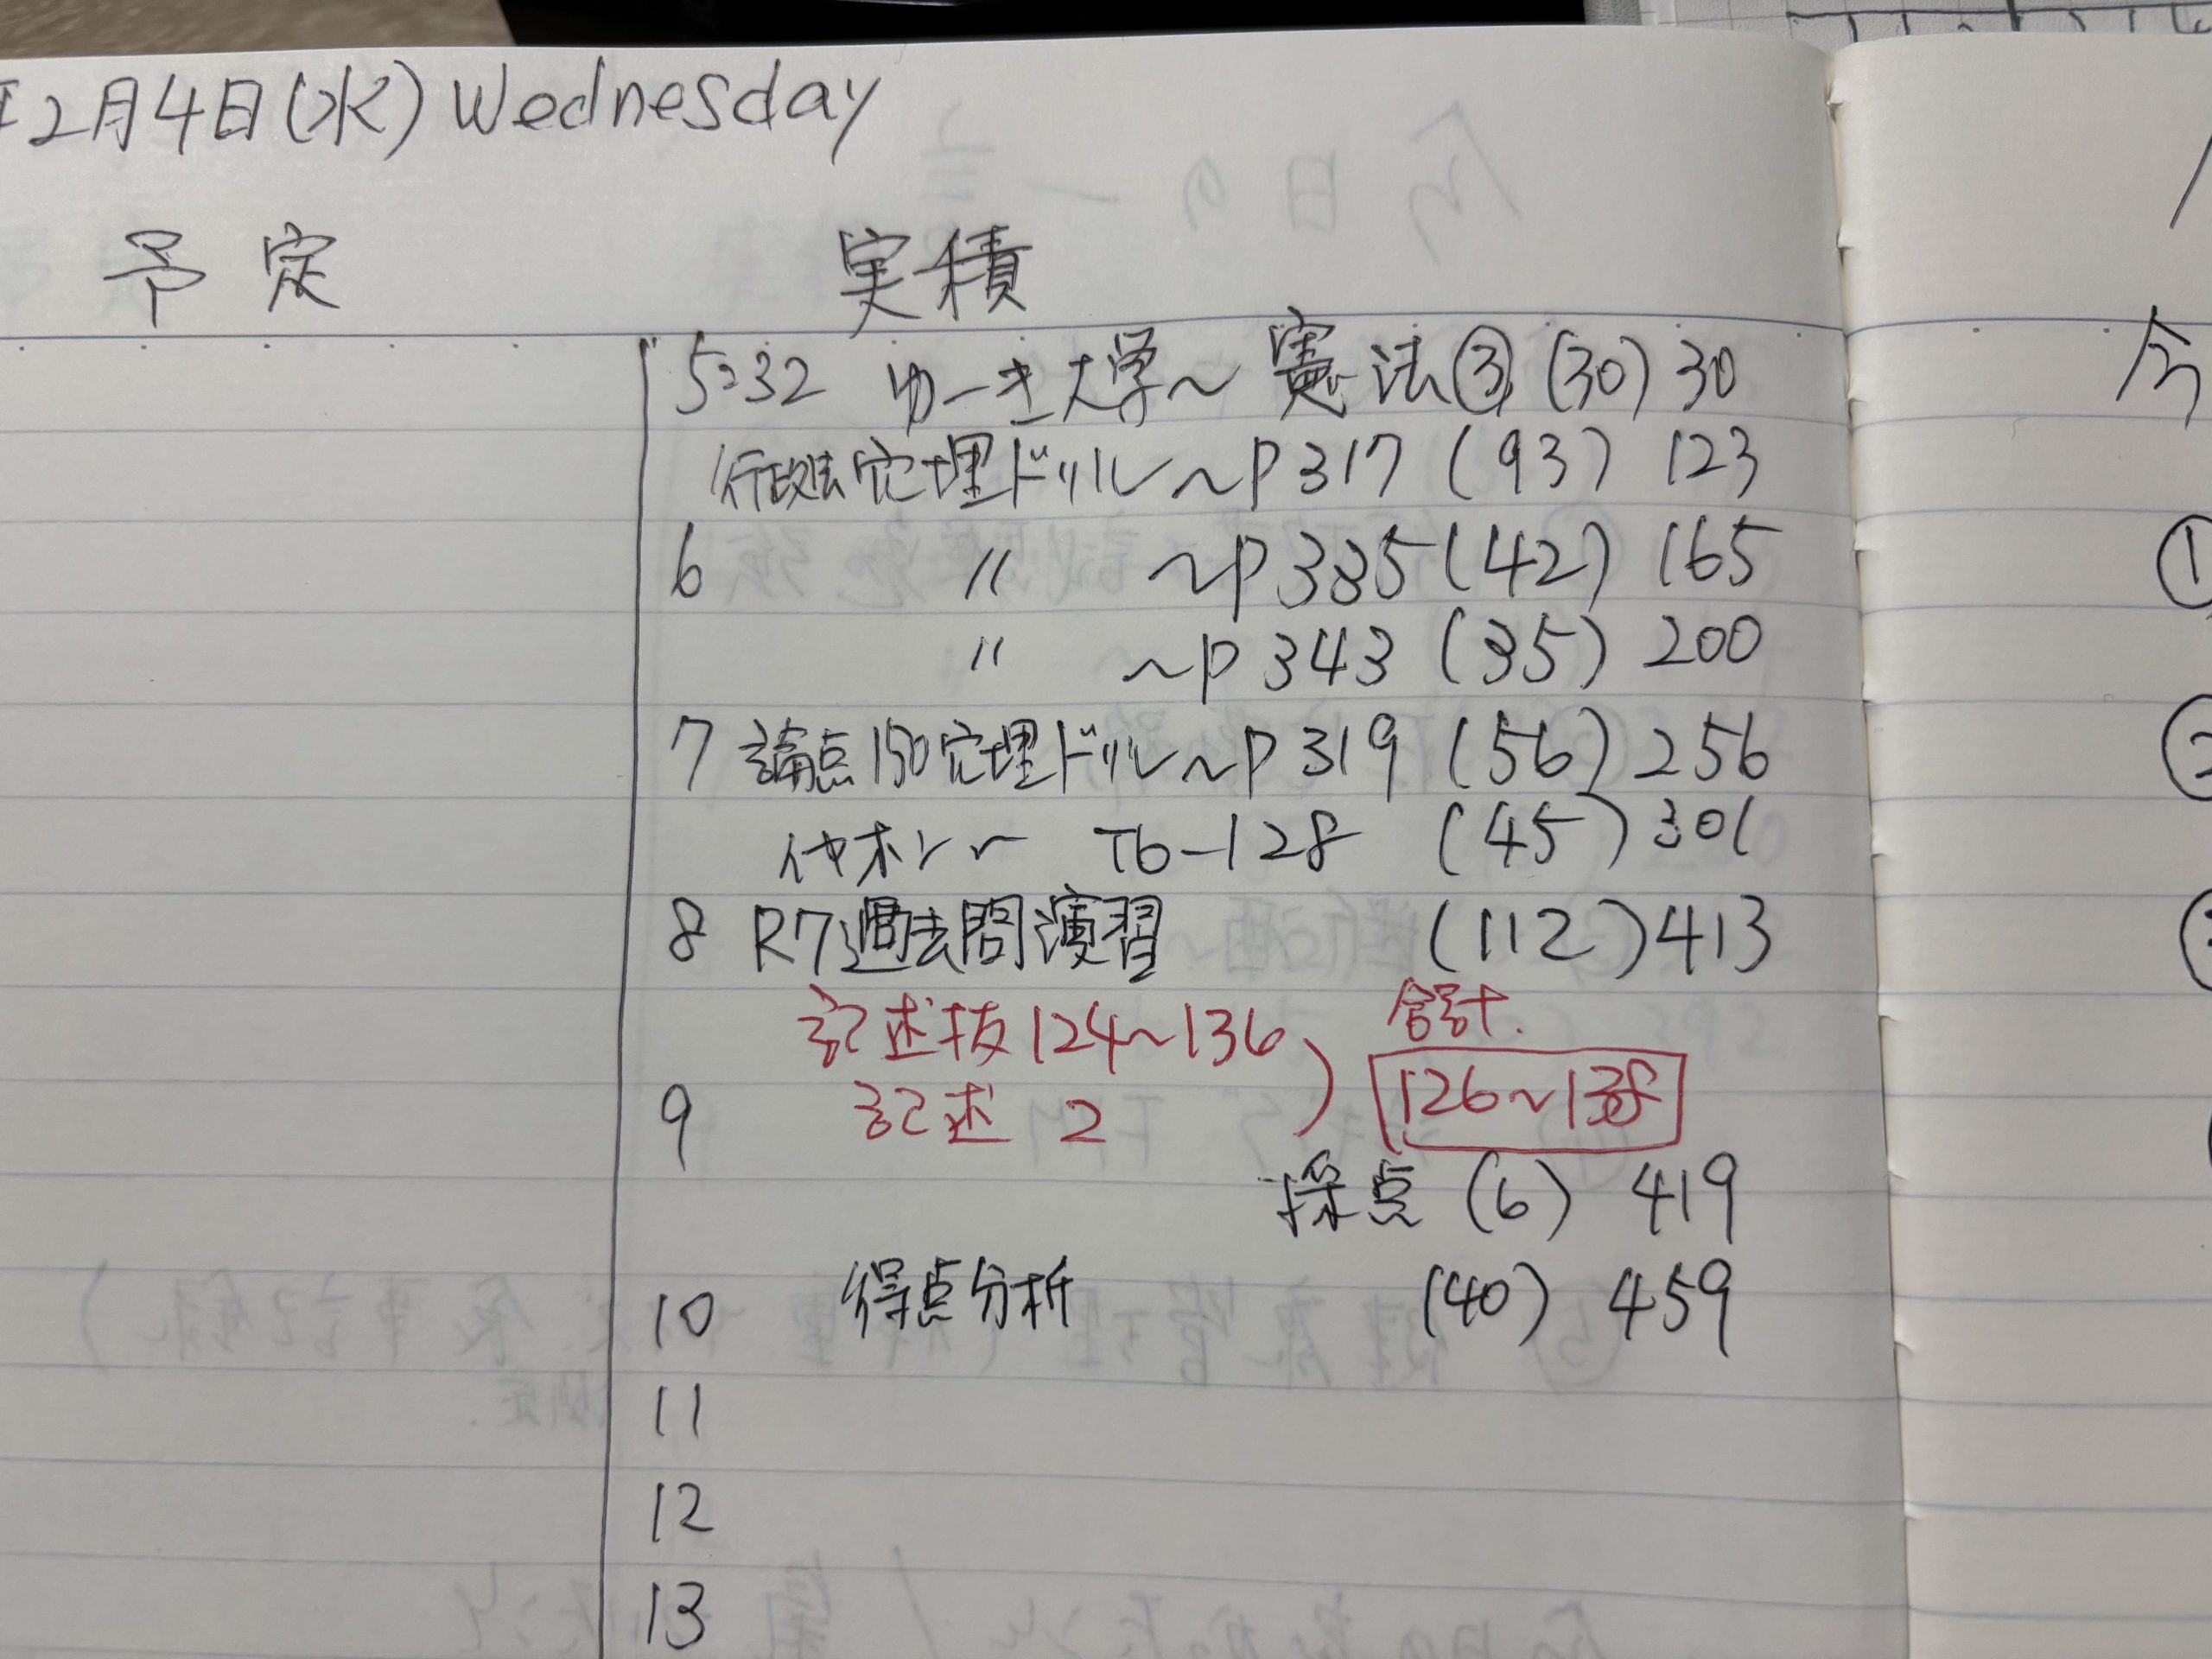 2月4日(水) Wednesday
予定 実積
5:32 ゆーき大学〜 憲法③ (30) 30
行政法穴埋ドリル〜P317 (93) 123
6 〃 〜P335 (42) 165
〃 〜P343 (35) 200
7 論点150穴埋ドリル〜P319 (56) 256
イヤホン〜 T6-128 (45) 301
8 R7過去問演習 (112) 413
記述抜124〜136 合計.
9 記述 2 126〜138
採点 (6) 419
10 得点分析 (40) 459
11
12
13
今
①
②